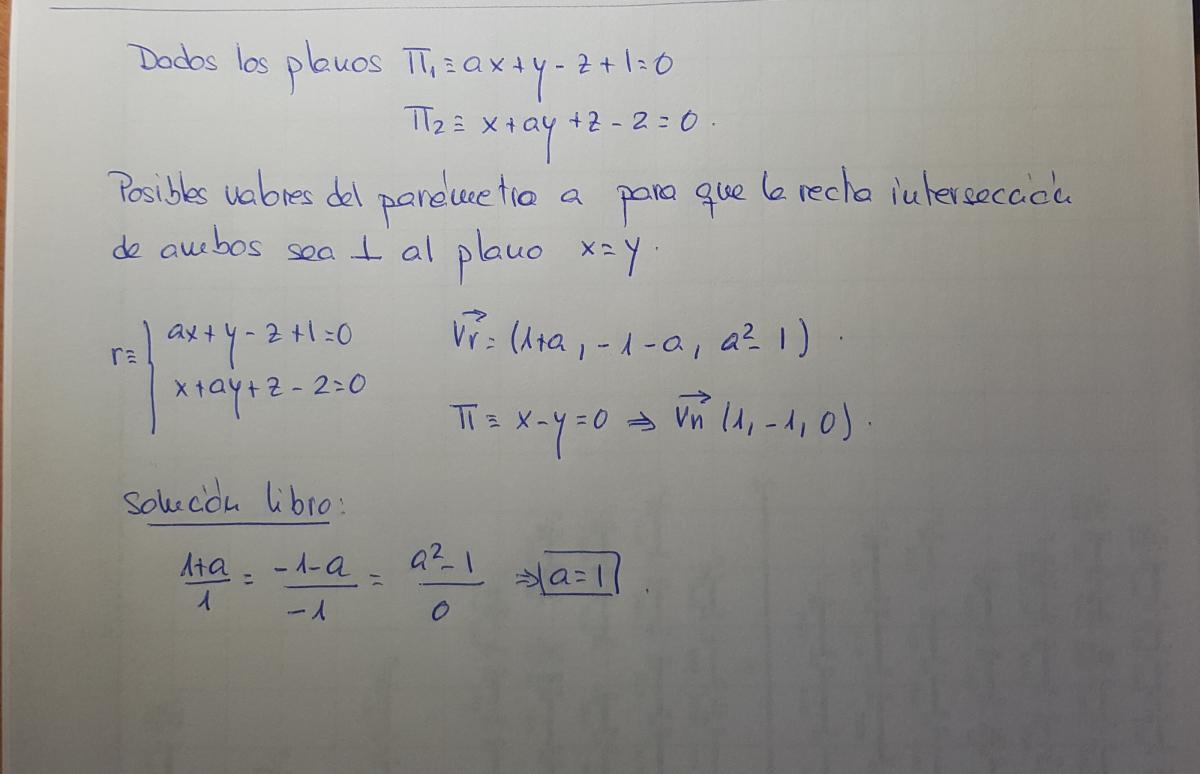 Dados los planos Π₁ ≡ ax+y-z+1=0
Π₂ ≡ x+ay+z-2=0.
Posibles valores del parámetro a para que la recta intersección
de ambos sea ⊥ al plano x=y.
r≡ { ax+y-z+1=0
x+ay+z-2=0
Vr⃗ = (1+a, -1-a, a²-1).
Π ≡ x-y=0 ⇒ Vn⃗ (1,-1,0).
Solución libro:
(1+a)/1 = (-1-a)/-1 = (a²-1)/0 ⇒ a=1.